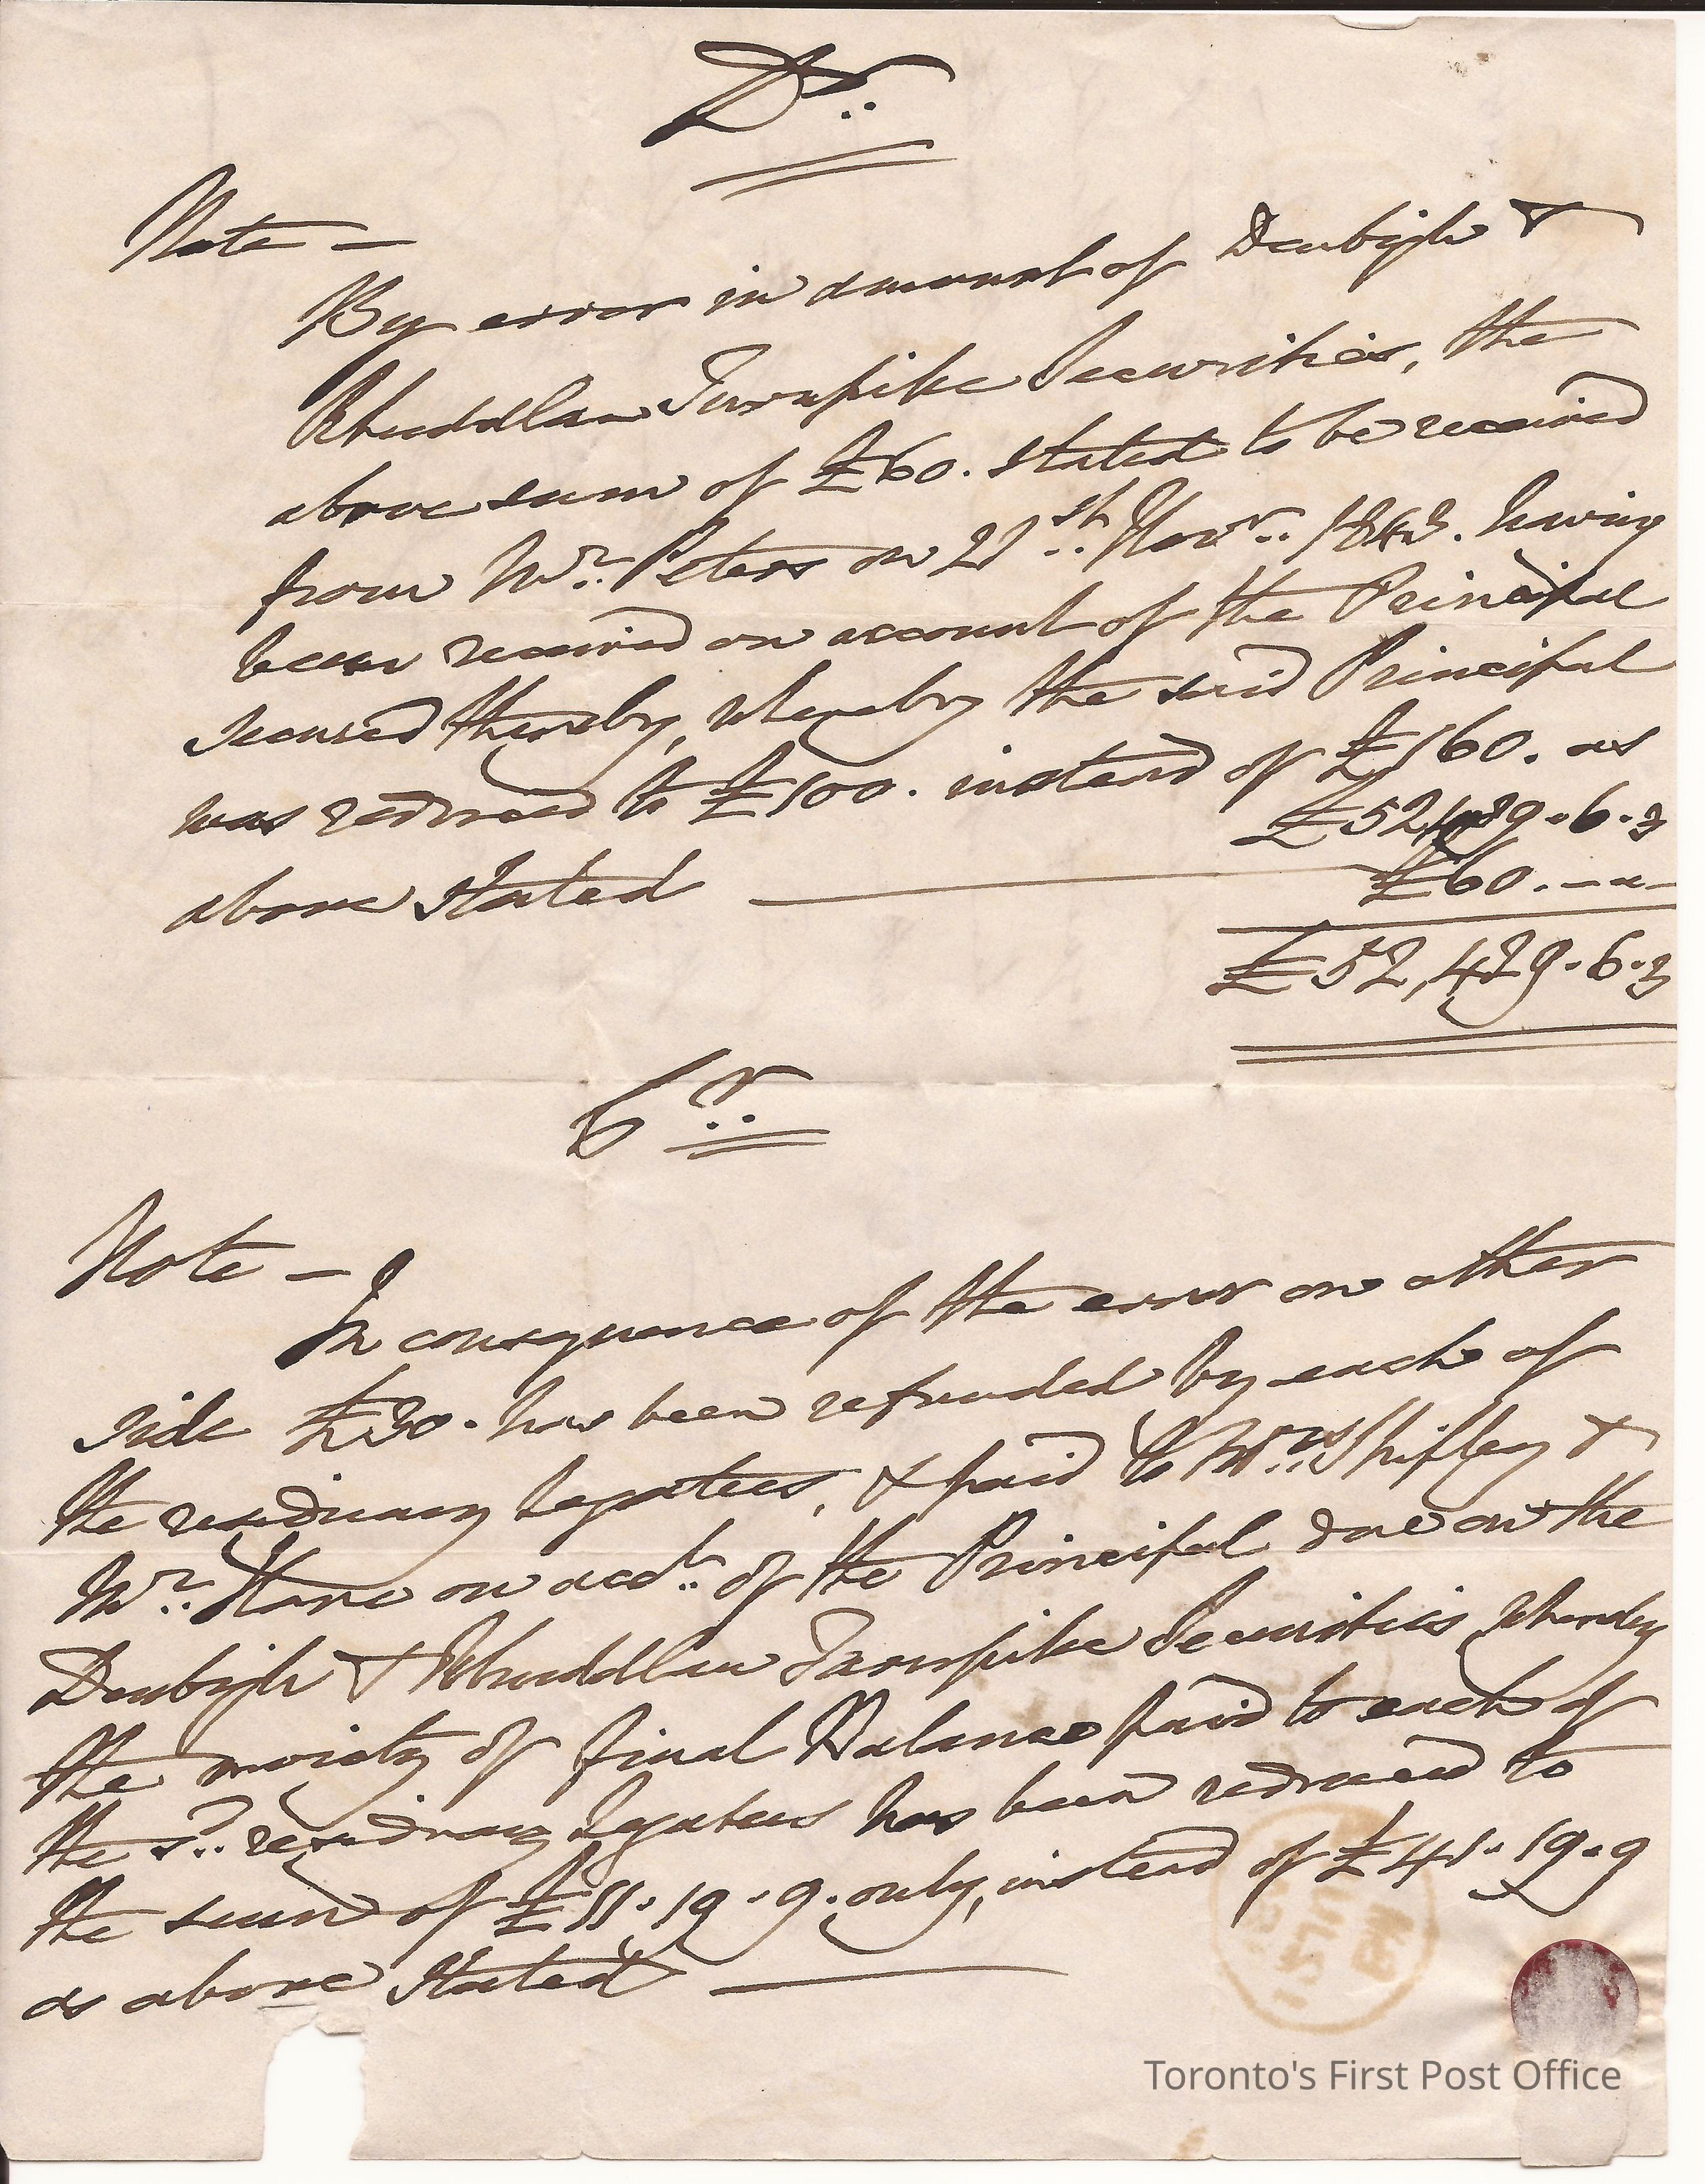 Dr.
Note —
By error in amount of Denbigh &
Rhuddlan Turnpike Securities, the
above sum of £60. stated to be received
from Mr. Peters on 21st Novr. 1843. having
been received on account of the Principal
secured thereby, whereby the said Principal
was reduced to £100. instead of £160. as
£52,489.6.3
above stated — £60.—"—
£52,429.6.3
Cr.
Note —
In consequence of the error on other
side £30. has been refunded by each of
the residuary legatees, & paid to Mrs. Shipley &
Mr. Hare on acct. of the Principal due on the
Denbigh & Rhuddlan Turnpike Securities whereby
the moiety of final Balance paid to each of
the sd. residuary legatees has been reduced to
the sum of £11.19.9. only, instead of £41.19.9
as above stated —
Toronto's First Post Office